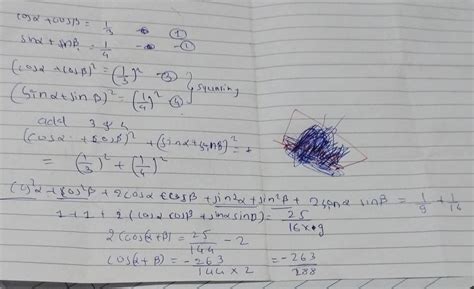 cosα + cosβ = 1/3 - ①
sinα + sinβ = 1/4 - ①
(cosα + cosβ)² = (1/3)² - ③
(sinα + sinβ)² = (1/4)² - ④ } squaring
add 3 & 4
(cosα + cosβ)² + (sinα + sinβ)² =
= (1/3)² + (1/4)²
cos²α + cos²β + 2cosα cosβ + sin²α + sin²β + 2sinα sinβ = 1/9 + 1/16
1 + 1 + 2(cosα cosβ + sinα sinβ) = 25/16×9
2(cos(α + β) = 25/144 - 2
cos(α + β) = -263/144 × 2 = -263/288